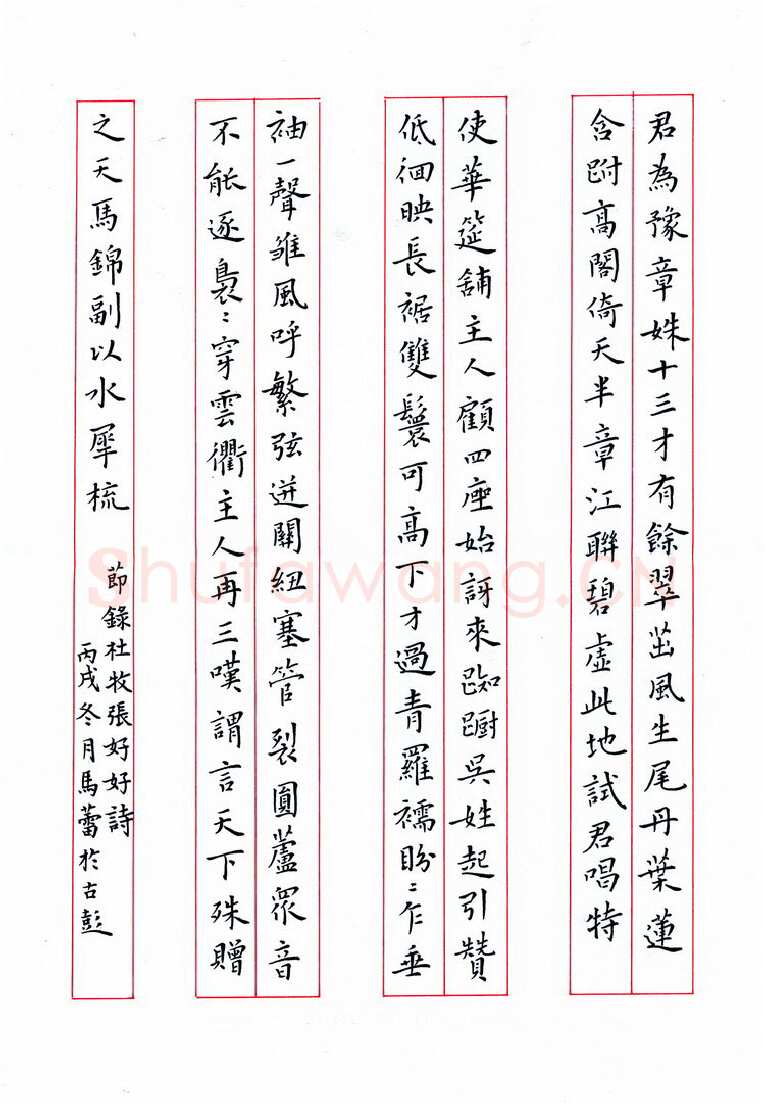 君為豫章姝十三才有餘翠茁風生尾丹葉蓮
含跗高閣倚天半章江聯碧虛此地試君唱特
使華筵舖主人顧四座始訝來踟蹰吳姓起引贊
低徊映長裾雙鬟可高下才過青羅襦盼〻乍垂
袖一聲雏風呼繁弦迸關紐塞管裂圓蘆眾音
不能逐裊〻穿雲衢主人再三嘆謂言天下殊贈
之天馬錦副以水犀梳
節錄社牧張好好詩
丙戌冬月馬蕾於古彭
Shufawang.CN